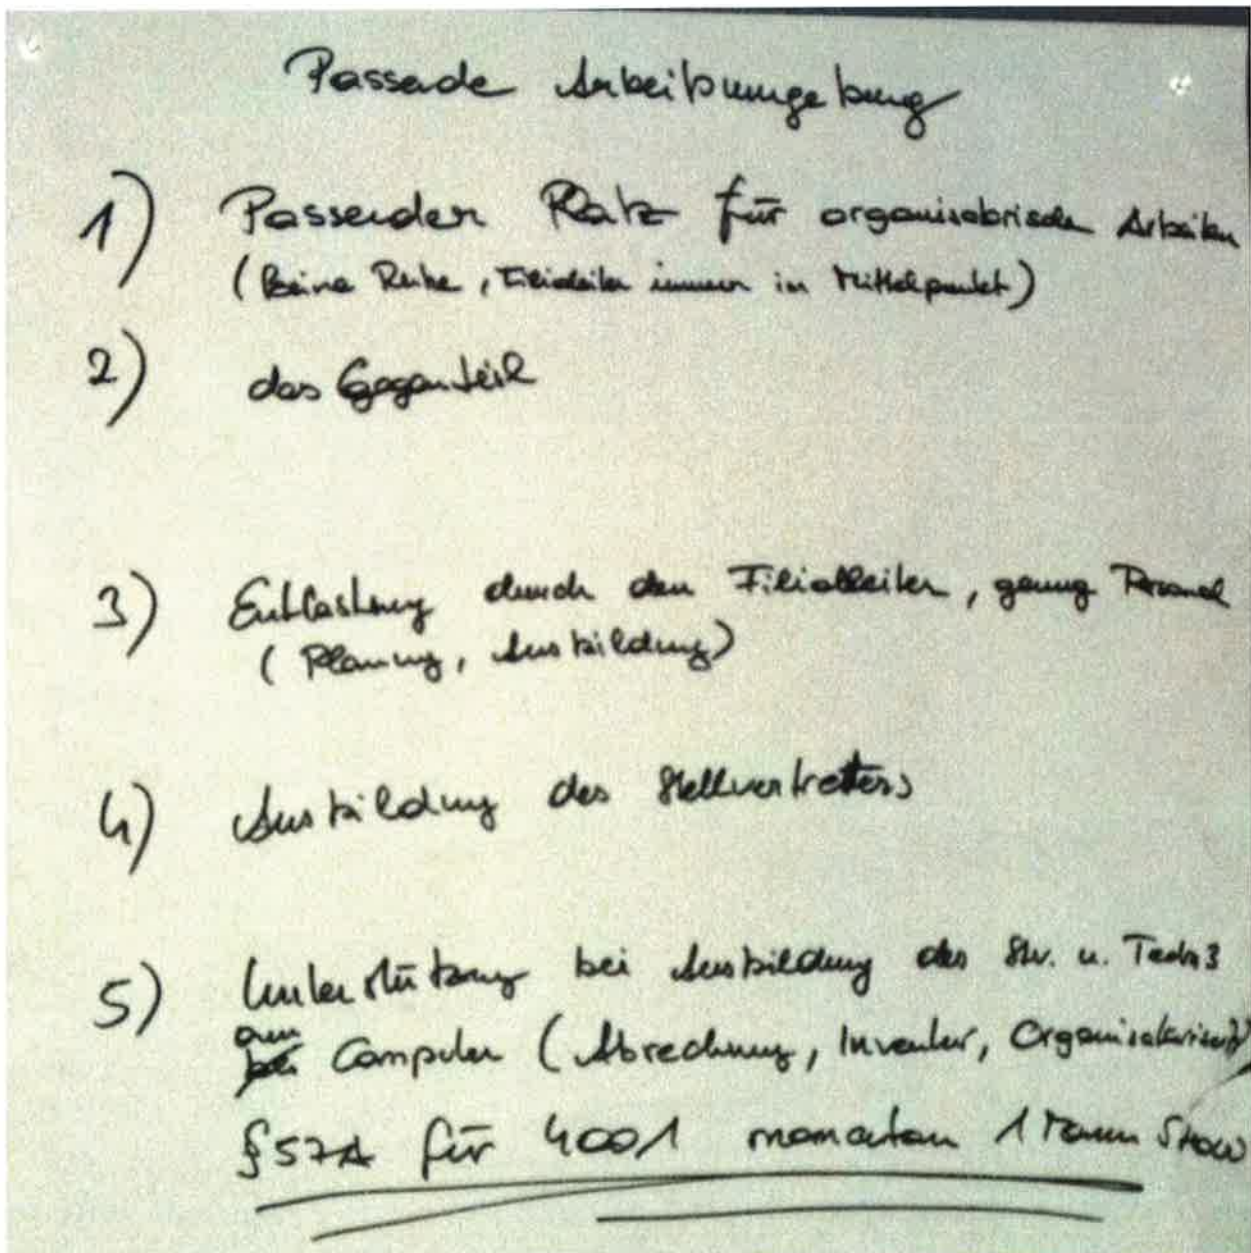 Passende Arbeitsumgebung
1) Passender Platz für organisatorische Arbeiten
(keine Ruhe, Filialleiter immer im Mittelpunkt)
2) das Gegenteil
3) Entlastung durch den Filialleiter, genug Personal
(Planung, Ausbildung)
4) Ausbildung des Stellvertretters
5) Unterstützung bei Ausbildung des Stv. u.
am Computer (Abrechnung, Inventur, Organisatorisch)
§57A für 4001 momentan 1 Mann Show